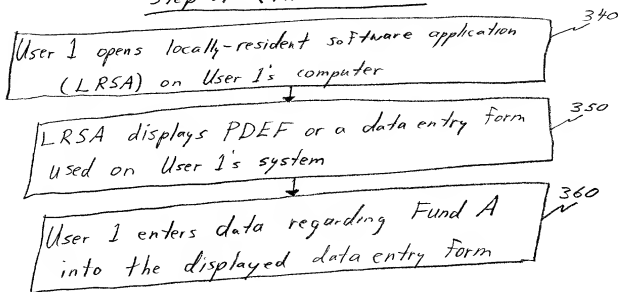 340
User 1 opens locally-resident software application
(LRSA) on User 1's computer
350
LRSA displays PDEF or a data entry form
used on User 1's system
360
User 1 enters data regarding Fund A
into the displayed data entry form